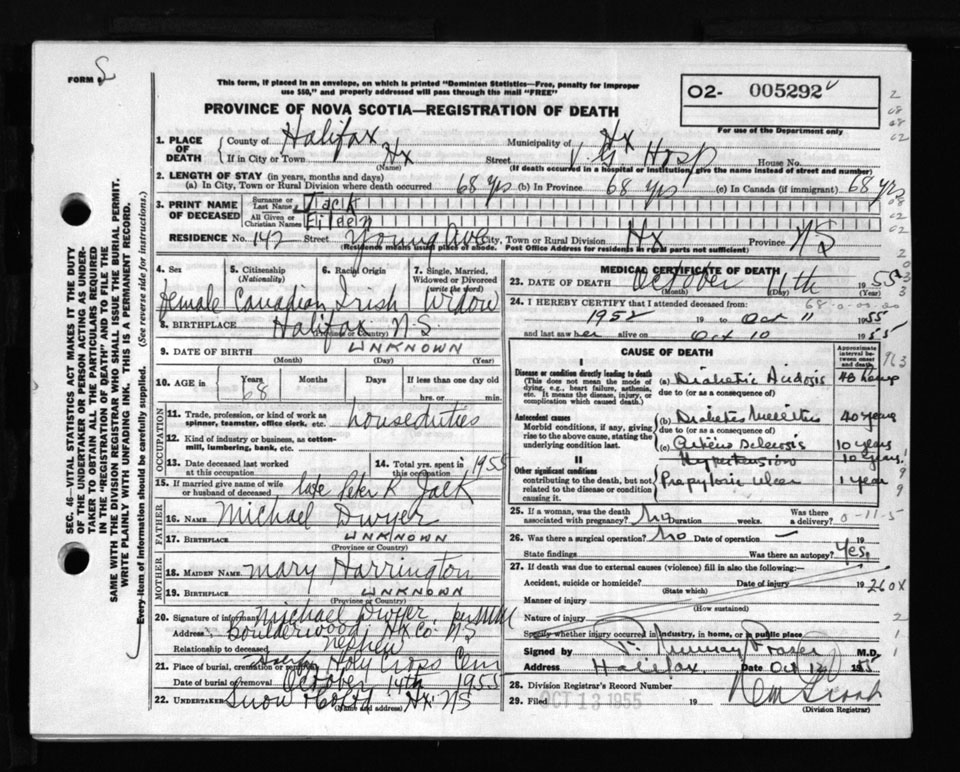 FORM 6
This form, if placed in an envelope, on which is printed "Dominion Statistics—Free, penalty for improper
use $50," and properly addressed will pass through the mail "FREE"
PROVINCE OF NOVA SCOTIA—REGISTRATION OF DEATH
O2- 005292
For use of the Department only
SEC. 46—VITAL STATISTICS ACT MAKES IT THE DUTY
OF THE UNDERTAKER OR PERSON ACTING AS UNDER-
TAKER TO OBTAIN ALL THE PARTICULARS REQUIRED
IN THE "REGISTRATION OF DEATH" AND TO FILE THE
SAME WITH THE DIVISION REGISTRAR WHO SHALL ISSUE THE BURIAL PERMIT.
WRITE PLAINLY WITH UNFADING INK. THIS IS A PERMANENT RECORD.
Every item of information should be carefully supplied. (See reverse side for instructions.)
1. PLACE OF DEATH County of Halifax Municipality of Hx
If in City or Town Hx (Name) Street V. G. Hosp House No.
(If death occurred in a hospital or institution, give the name instead of street and number)
2. LENGTH OF STAY (in years, months and days)
(a) In City, Town or Rural Division where death occurred 68 yrs (b) In Province 68 yrs (c) In Canada (if immigrant) 68 yrs
3. PRINT NAME OF DECEASED Surname or Last Name Jack
All Given or Christian Names Eileen
RESIDENCE No. 142 Street Young Ave City, Town or Rural Division Hx Province NS
(Residence means usual place of abode. Post Office Address for residents in rural parts not sufficient)
4. Sex female
5. Citizenship (Nationality) Canadian
6. Racial Origin Irish
7. Single, Married, Widowed or Divorced (write the word) Widow
8. BIRTHPLACE Halifax N.S.
(Province or Country)
9. DATE OF BIRTH UNKNOWN
(Month) (Day) (Year)
10. AGE in Years 68 Months Days If less than one day old hrs. or min.
OCCUPATION
11. Trade, profession, or kind of work as spinner, teamster, office clerk, etc. houseduties
12. Kind of industry or business, as cotton-mill, lumbering, bank, etc.
13. Date deceased last worked at this occupation
14. Total yrs. spent in this occupation 1955
15. If married give name of wife or husband of deceased late Peter R Jack
FATHER
16. NAME Michael Dwyer
17. BIRTHPLACE UNKNOWN
(Province or Country)
MOTHER
18. MAIDEN NAME Mary Harrington
19. BIRTHPLACE UNKNOWN
(Province or Country)
20. Signature of informant Michael Dwyer per
Address Boulderwood, Hx Co. NS
Relationship to deceased nephew
21. Place of burial, cremation or removal Holy Cross Cem
Date of burial or removal October 14th 1955
22. UNDERTAKER Snow & Co Ltd Hx NS
(Name and address)
MEDICAL CERTIFICATE OF DEATH
23. DATE OF DEATH October 11th 1955
(Month) (Day) (Year)
24. I HEREBY CERTIFY that I attended deceased from:
1952 19 to Oct 11 1955
and last saw her alive on Oct 10 1955
CAUSE OF DEATH
Approximate interval between onset and death
I
Disease or condition directly leading to death
(This does not mean the mode of dying, e.g., heart failure, asthenia, etc. It means the disease, injury, or complication which caused death.)
(a) Diabetic Acidosis 48 hours
due to (or as a consequence of)
Antecedent causes
Morbid conditions, if any, giving rise to the above cause, stating the underlying condition last.
(b) Diabetes Mellitus 40 years
due to (or as a consequence of)
(c) Arterio Sclerosis 10 years
II
Hypertension 10 years
Other significant conditions
contributing to the death, but not related to the disease or condition causing it.
Prepyloric Ulcer 1 year
25. If a woman, was the death associated with pregnancy? No Duration weeks. Was there a delivery?
26. Was there a surgical operation? No Date of operation —
State findings Was there an autopsy? Yes.
27. If death was due to external causes (violence) fill in also the following:—
Accident, suicide or homicide? Date of injury 19
(State which)
Manner of injury
(How sustained)
Nature of injury
260X
Specify whether injury occurred in industry, in home, or in public place
Signed by Murray Fraser M.D.
Address Halifax. Date Oct 12 1955
28. Division Registrar's Record Number
29. Filed OCT 13 1955 19
(Division Registrar)